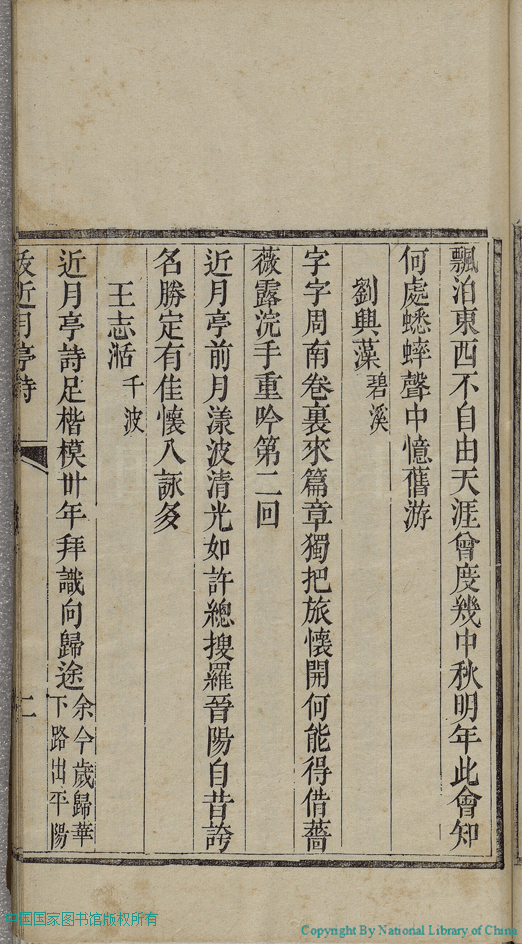 飄泊東西不自由天涯曾度幾中秋明年此會知
何處蟋蟀聲中憶舊游
劉興藻碧溪
字字周南卷裏來篇章獨把旅懷開何能得借薔
薇露浣手重吟第二回
近月亭前月漾波清光如許總搜羅晉陽自昔誇
名勝定有佳懷入詠多
王志湉千波
近月亭詩足楷模卅年拜識向歸途余今歲歸華
下路出平陽
近月亭詩
二
中国国家图书馆版权所有
Copyright By National Library of China